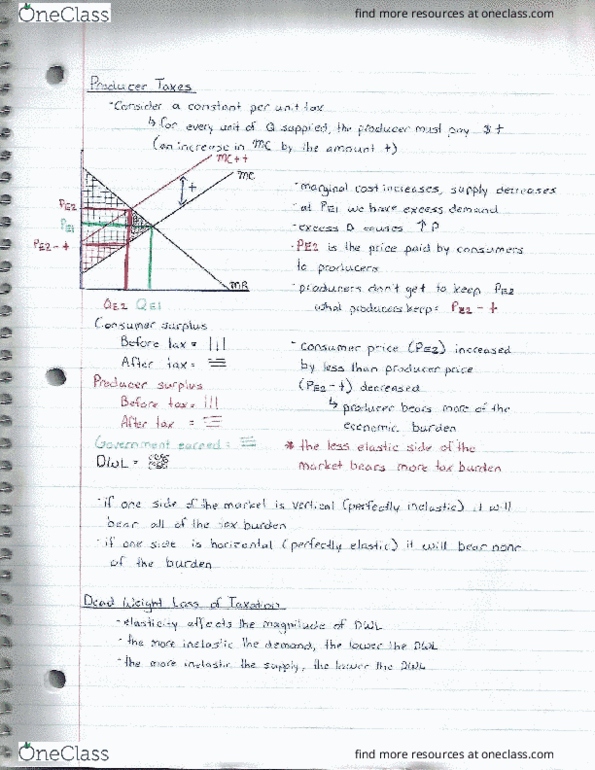 OneClass
find more resources at oneclass.com
Producer Taxes
- Consider a constant per unit tax
↳ for every unit of Q supplied, the producer must pay $t
(an increase in MC by the amount t)
MC+t
MC
t
PE2
PE1
PE2-t
MR
QE2 QE1
- marginal cost increases, supply decreases
- at PE1 we have excess demand
- excess D causes ↑P
- PE2 is the price paid by consumers
to producers
- producers don't get to keep PE2
what producers keep: PE2-t
Consumer surplus
Before tax = |||
After tax =
Producer surplus
Before tax = |||
After tax =
Government exceed =
DWL =
- consumer price (PE2) increased
by less than producer price
(PE2-t) decreased
↳ producer bears more of the
economic burden
* the less elastic side of the
market bears more tax burden
- if one side of the market is vertical (perfectly inelastic) it will
bear all of the tax burden
- if one side is horizontal (perfectly elastic) it will bear none
of the burden
Dead Weight Loss of Taxation
- elasticity affects the magnitude of DWL
- the more inelastic the demand, the lower the DWL
- the more inelastic the supply, the lower the DWL
OneClass
find more resources at oneclass.com